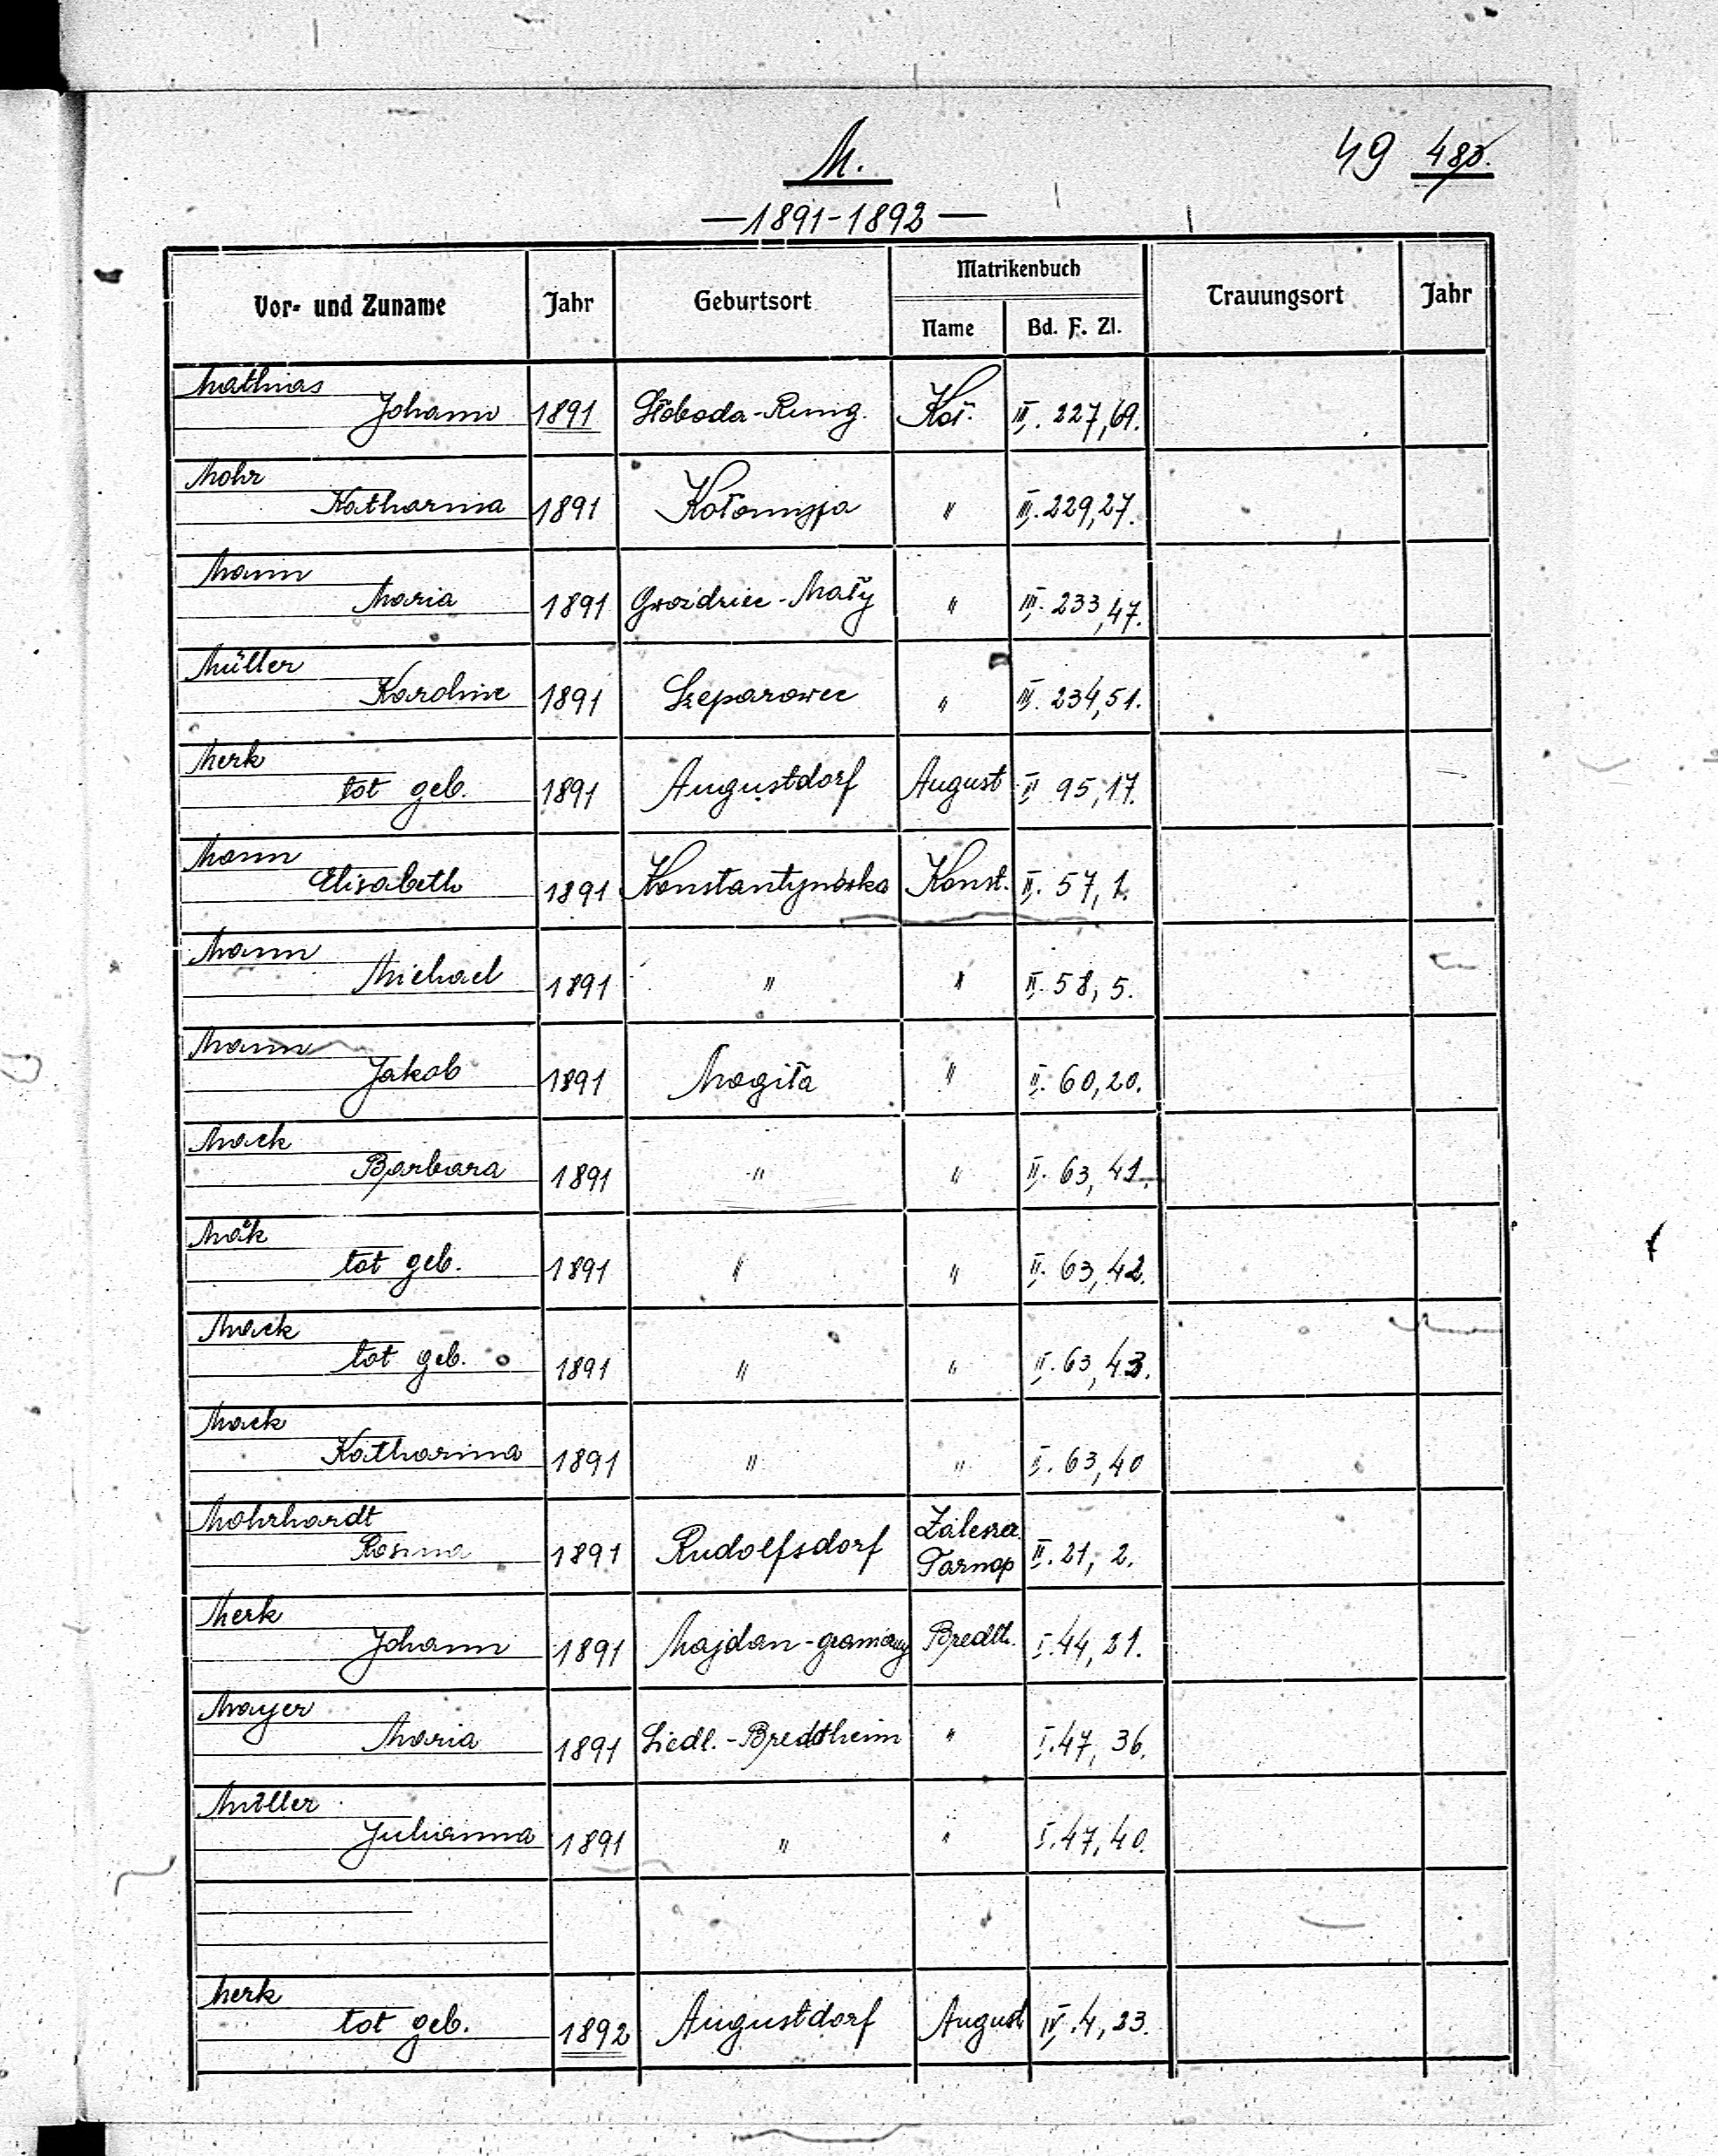 M.
49 480.
—1891-1892—
Vor- und Zuname Jahr Geburtsort Matrikenbuch Trauungsort Jahr
Name Bd. F. Zl.
Mathias
Johann 1891 Słoboda-Rung. Koł. III. 227,69.
Mohr
Katharina 1891 Kołomyja " III. 229,27.
Mann
Maria 1891 Gwoździec-Mały " III. 233,47.
Müller
Karoline 1891 Szeparowce " III. 234,51.
Merk
tot geb. 1891 Augustdorf August II 95,17.
Mann
Elisabeth 1891 Konstantynówka Konst. II. 57, 1.
Mann
Michael 1891 " " II. 58, 5.
Mann
Jakob 1891 Mogiła " II. 60,20.
Mack
Barbara 1891 " " II. 63, 41.
Mak
tot geb. 1891 " " II. 63,42.
Mack
tot geb. 1891 " " II. 63,43.
Mack
Katharina 1891 " " II. 63,40
Mohrhardt Zaleszcz.
Rosina 1891 Rudolfsdorf Tarnop II. 21, 2.
Merk
Johann 1891 Majdan-graniczny Bredth. I. 44, 21.
Mayer
Maria 1891 Siedl.-Bredtheim " I. 47, 36.
Müller
Julianna 1891 " " I. 47, 40.
Merk
tot geb. 1892 Augustdorf August IV. 4, 23.